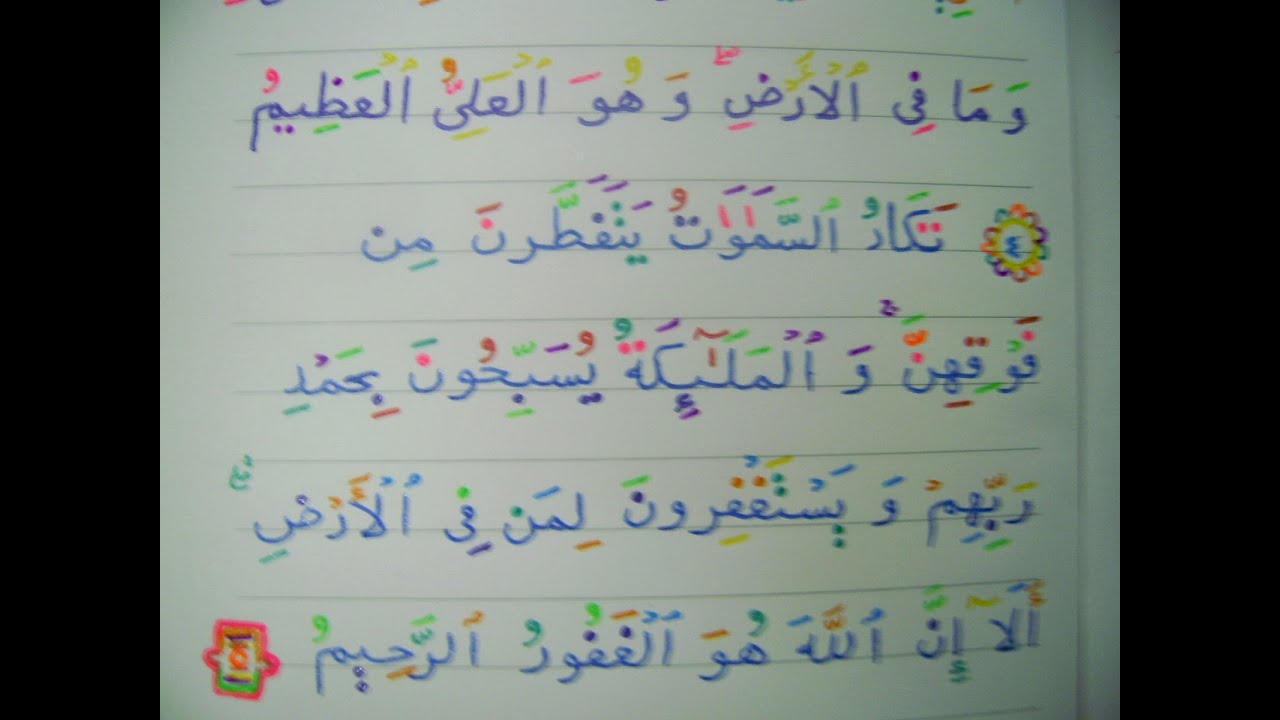 وَمَا فِى ٱلْأَرْضِ ۖ وَهُوَ ٱلْعَلِىُّ ٱلْعَظِيمُ
٤ تَكَادُ ٱلسَّمَٰوَٰتُ يَتَفَطَّرْنَ مِن
فَوْقِهِنَّ ۚ وَٱلْمَلَٰٓئِكَةُ يُسَبِّحُونَ بِحَمْدِ
رَبِّهِمْ وَيَسْتَغْفِرُونَ لِمَن فِى ٱلْأَرْضِ ۗ
أَلَآ إِنَّ ٱللَّهَ هُوَ ٱلْغَفُورُ ٱلرَّحِيمُ ٥